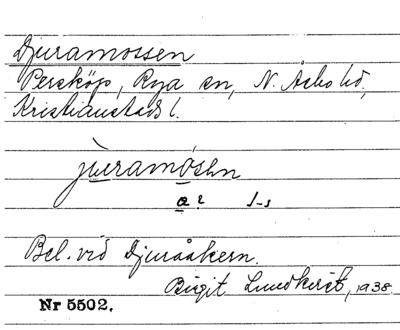 Djuramossen
Perstorp, Rya sn, N. Åsbo hd,
Kristianstads l.
juramósən
a 2 s-s
Bel. vid Djuråkern.
Birgit Lundkvist, 1938.
Nr 5502.